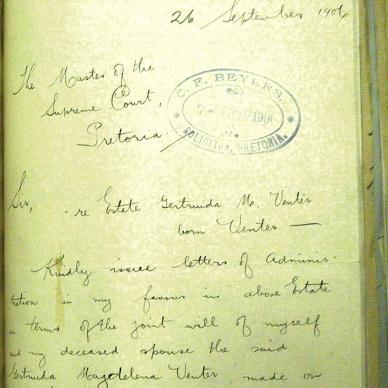 26 September 1906
The Master of the
Supreme Court,
Pretoria.
C. F. BEYERS,
SOLICITOR, PRETORIA.
Sir,
re Estate Gertruida M. Venter
born Venter —
Kindly issue letters of Adminis-
tration in my favour in above Estate
in terms of the joint will of myself
and my deceased spouse the said
Gertruida Magdelena Venter made on